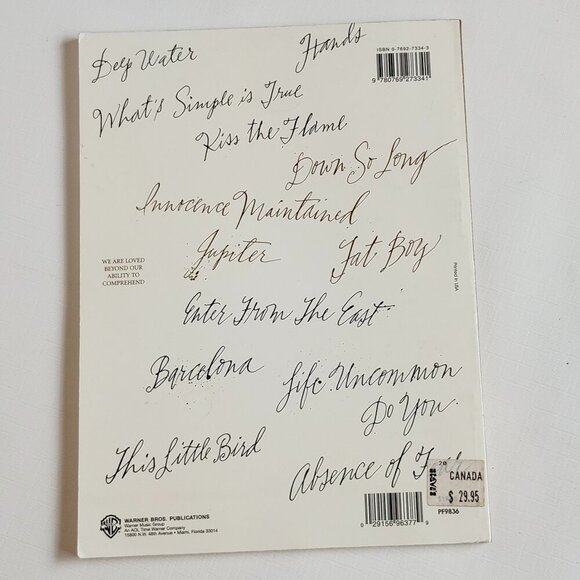 Deep Water
Hands
ISBN 0-7692-7334-3
9 780769 273341
What's Simple is True
Kiss the Flame
Down So Long
Innocence Maintained
Jupiter
Fat Boy
WE ARE LOVED
BEYOND OUR
ABILITY TO
COMPREHEND
Printed in USA
Enter From The East
Barcelona
Life Uncommon
Do You
This Little Bird
Absence of
20
CANADA
$ 29.95
WB
WARNER BROS. PUBLICATIONS
Warner Music Group
An AOL Time Warner Company
15800 N.W. 48th Avenue • Miami, Florida 33014
0 29156 96377 9
PF9836